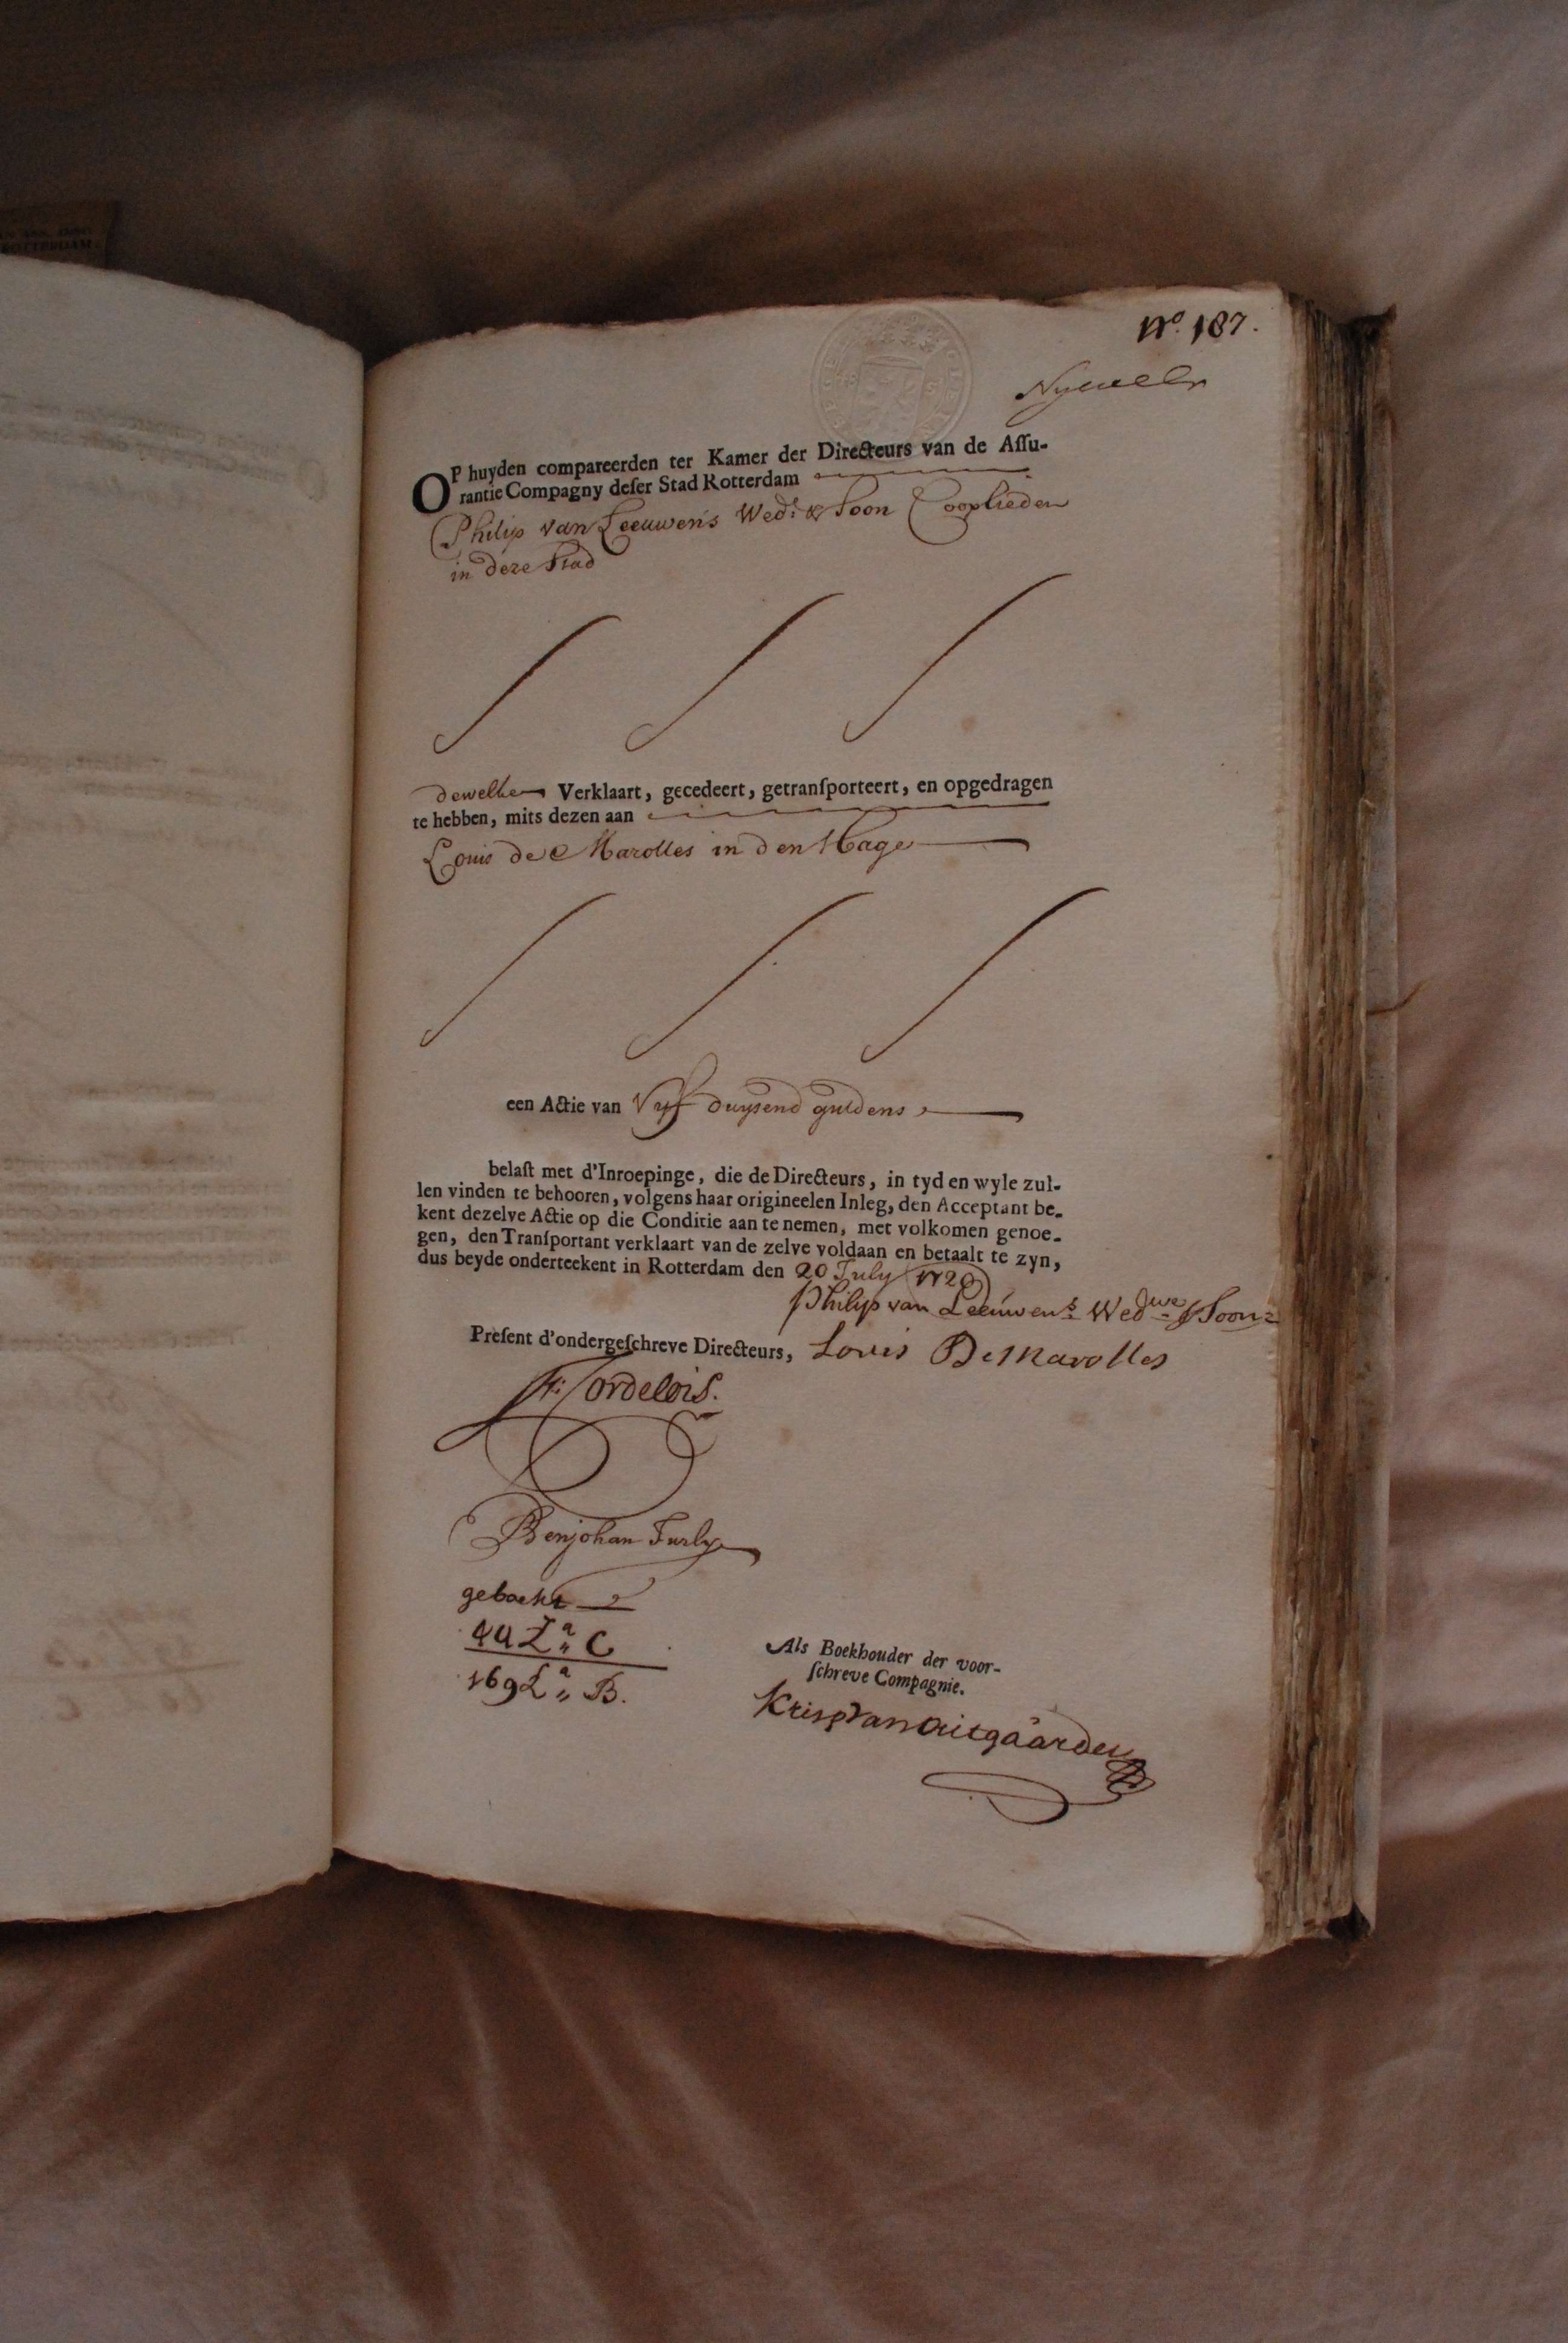 ROTTERDAM.
No. 187.
OP huyden compareerden ter Kamer der Directeurs van de Assu-
rantie Compagny deser Stad Rotterdam
Philip van Leeuwens Wed.e & Soon Cooplieden
in deze Stad
dewelke Verklaart, gecedeert, getransporteert, en opgedragen
te hebben, mits dezen aan
Louis de Marolles in den Hage
een Actie van Vyf duysend guldens,
belast met d'Inroepinge, die de Directeurs, in tyd en wyle zul-
len vinden te behooren, volgens haar origineelen Inleg, den Acceptant be-
kent dezelve Actie op die Conditie aan te nemen, met volkomen genoe-
gen, den Transportant verklaart van de zelve voldaan en betaalt te zyn,
dus beyde onderteekent in Rotterdam den 20 July 1720
Philip van Leeuwens Wedwe & Soon
Present d'ondergeschreve Directeurs, Louis De Marolles
Cordelois.
Benjohan Furly
geboekt
La C
169 La B.
Als Boekhouder der voor-
schreve Compagnie.
Krisp van